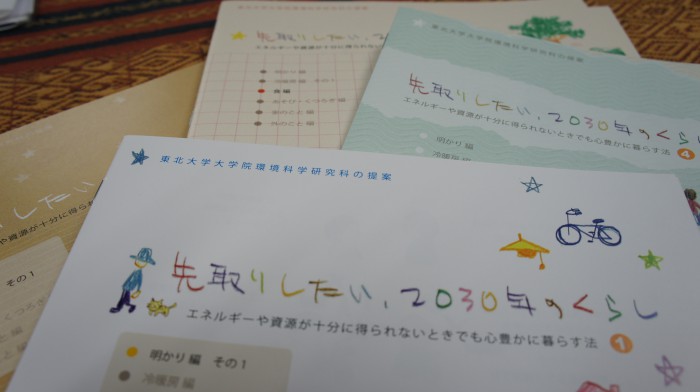 先取りしたい、2
● 食編
東北大学大学院環境科学研究科の提案
先取りしたい、2030年のくらし
エネルギーや資源が十分に得られないときでも心豊かに暮らす法 4
明かり編
冷暖房編
したい
や資源が十分に得られ
その1
東北大学大学院環境科学研究科の提案
先取りしたい、2030年のくらし
エネルギーや資源が十分に得られないときでも心豊かに暮らす法 1
● 明かり編 その1
● 冷暖房編